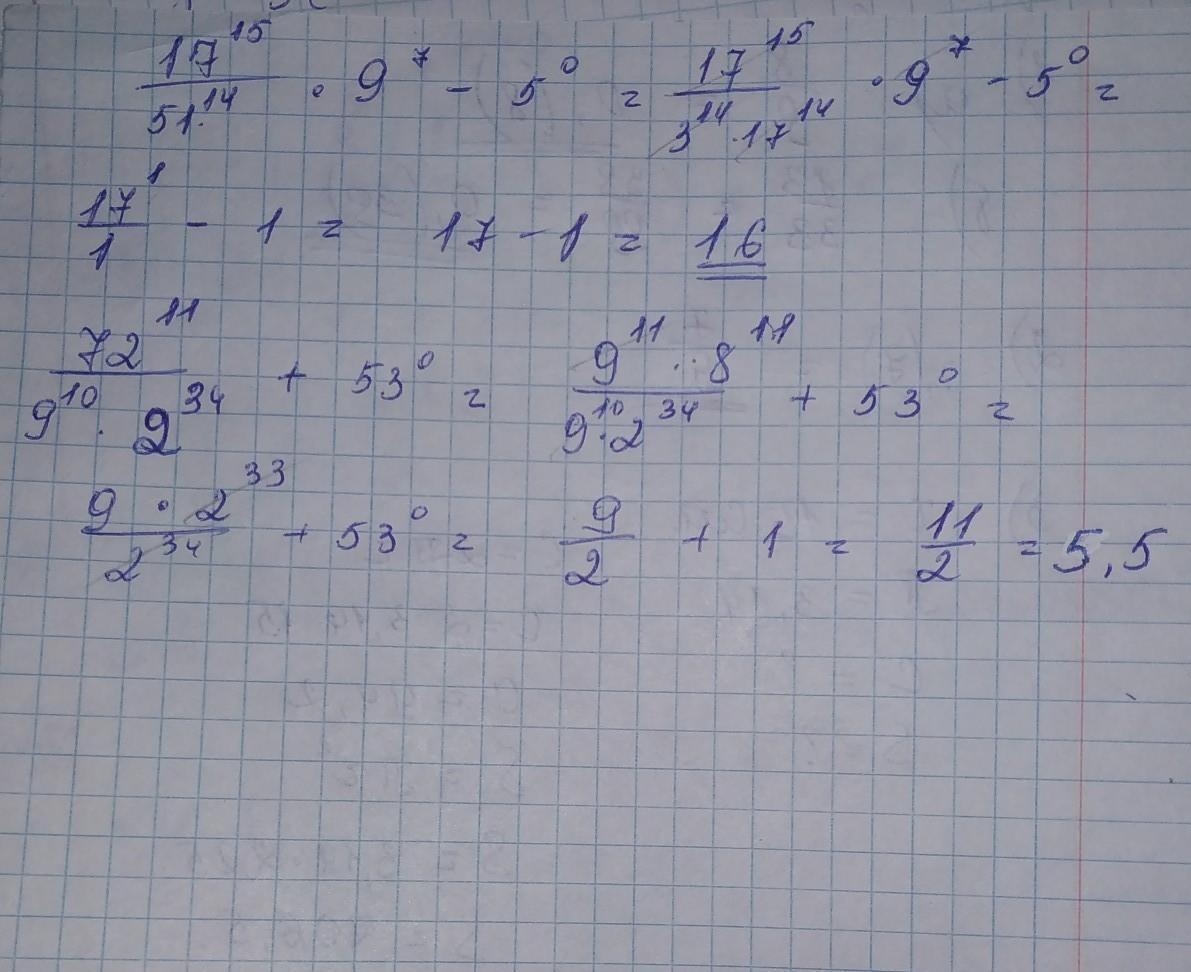 17^15 / 51^14 · 9^7 - 5^0 = 17^15 / 3^14 · 17^14 · 9^7 - 5^0 =
17^1 / 1 - 1 = 17 - 1 = 16
72^11 / 9^10 · 2^34 + 53^0 = 9^11 · 8^11 / 9^10 · 2^34 + 53^0 =
9 · 2^33 / 2^34 + 53^0 = 9 / 2 + 1 = 11 / 2 = 5,5